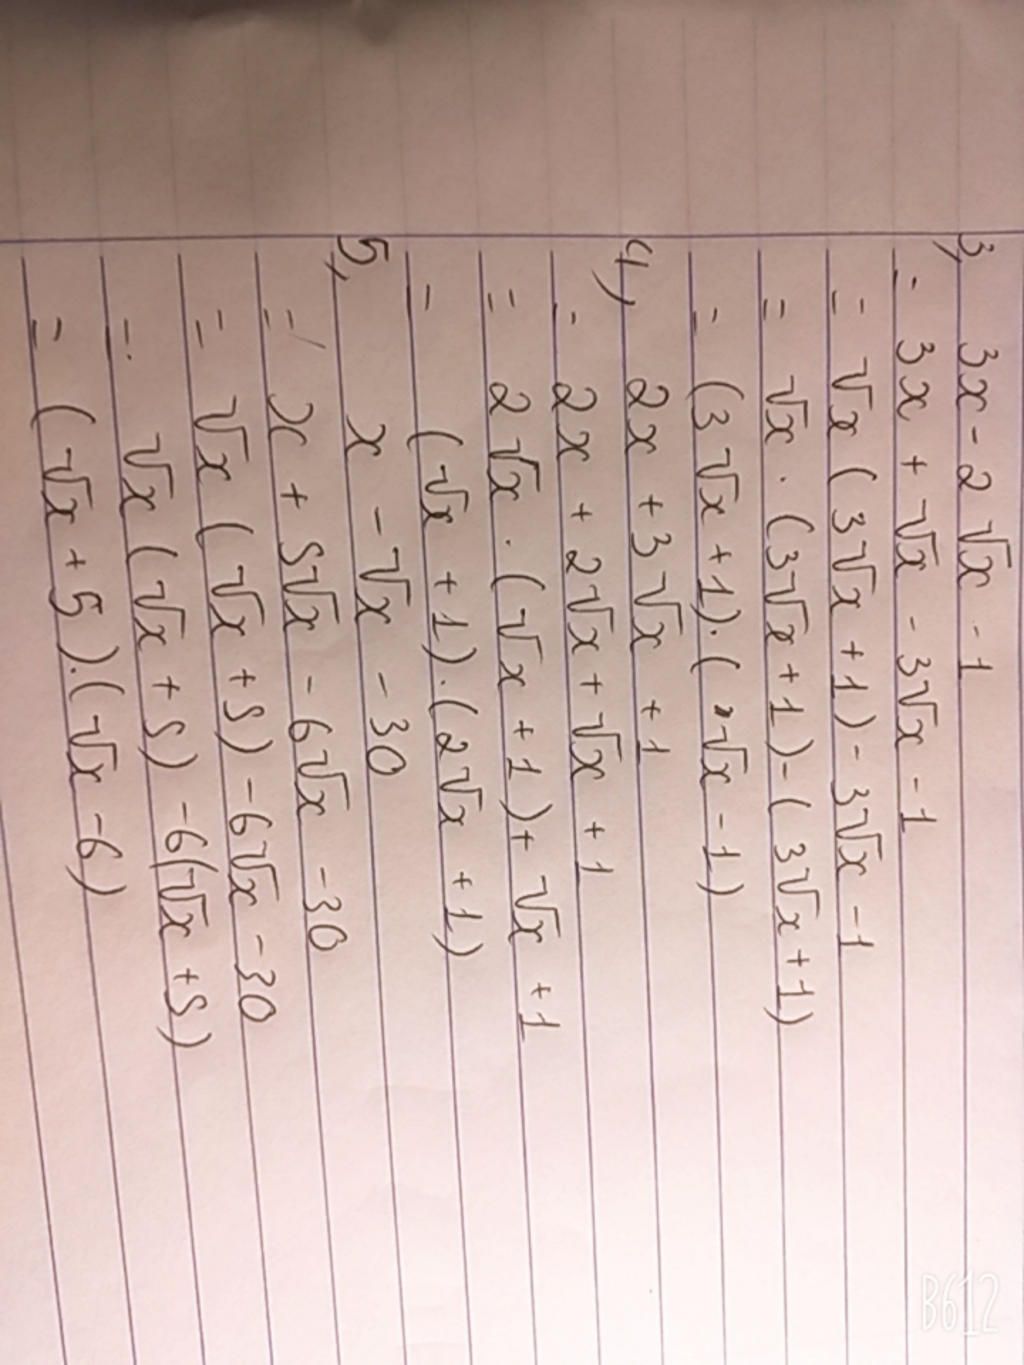 3, 3x - 2√x - 1
= 3x + √x - 3√x - 1
= √x (3√x + 1) - 3√x - 1
= √x . (3√x + 1) - (3√x + 1)
= (3√x + 1) . (√x - 1)
4, 2x + 3√x + 1
= 2x + 2√x + √x + 1
= 2√x . (√x + 1) + √x + 1
= (√x + 1) . (2√x + 1)
5, x - √x - 30
= x + 5√x - 6√x - 30
= √x (√x + 5) - 6√x - 30
= √x (√x + 5) - 6(√x + 5)
= (√x + 5) . (√x - 6)
B612